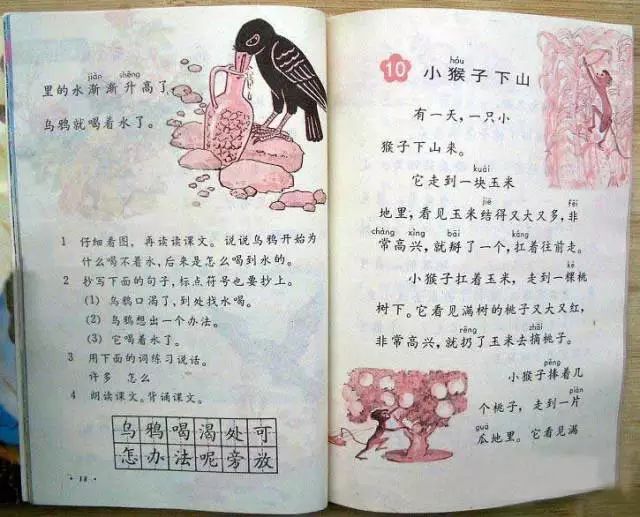 jiàn shēng
里的水渐渐升高了,
乌鸦就喝着水了。
1 仔细看图,再读读课文。说说乌鸦开始为
什么喝不着水,后来是怎么喝到水的。
2 抄写下面的句子,标点符号也要抄上。
(1) 乌鸦口渴了,到处找水喝。
(2) 乌鸦想出一个办法。
(3) 它喝着水了。
3 用下面的词练习说话。
许多 怎么
4 朗读课文。背诵课文。
乌鸦喝渴处可
怎办法呢旁放
hóu
10 小猴子下山
有一天,一只小
猴子下山来。
kuài
它走到一块玉米
jiē fēi
地里,看见玉米结得又大又多,非
cháng xìng bāi káng
常高兴,就掰了一个,扛着往前走。
小猴子扛着玉米,走到一棵桃
树下。它看见满树的桃子又大又红,
rēng zhāi
非常高兴,就扔了玉米去摘桃子。
pěng
小猴子捧着几
piàn
个桃子,走到一片
guā
瓜地里。它看见满